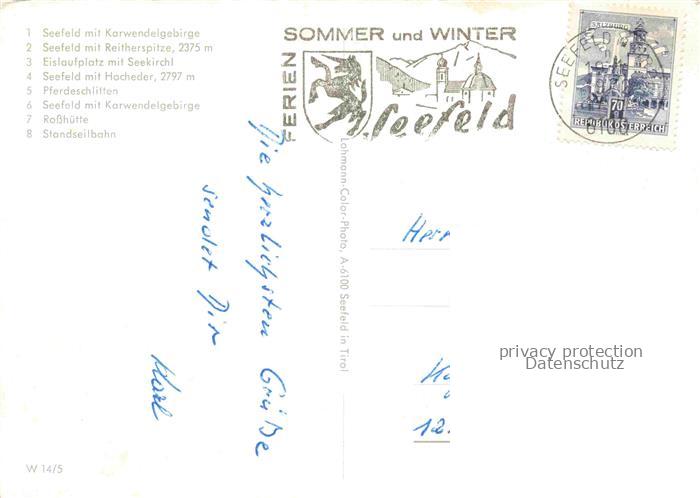 1 Seefeld mit Karwendelgebirge
2 Seefeld mit Reitherspitze, 2375 m
3 Eislaufplatz mit Seekirchl
4 Seefeld mit Hocheder, 2797 m
5 Pferdeschlitten
6 Seefeld mit Karwendelgebirge
7 Roßhütte
8 Standseilbahn
W 14/5
FERIEN
SOMMER und WINTER
Seefeld
SALZBURG
70
REPUBLIK ÖSTERREICH
SEEFELD
Lohmann-Color-Photo, A-6100 Seefeld in Tirol
Die herzlichsten Grüße
sendet Dir
Karl
Herr
12.
privacy protection
Datenschutz